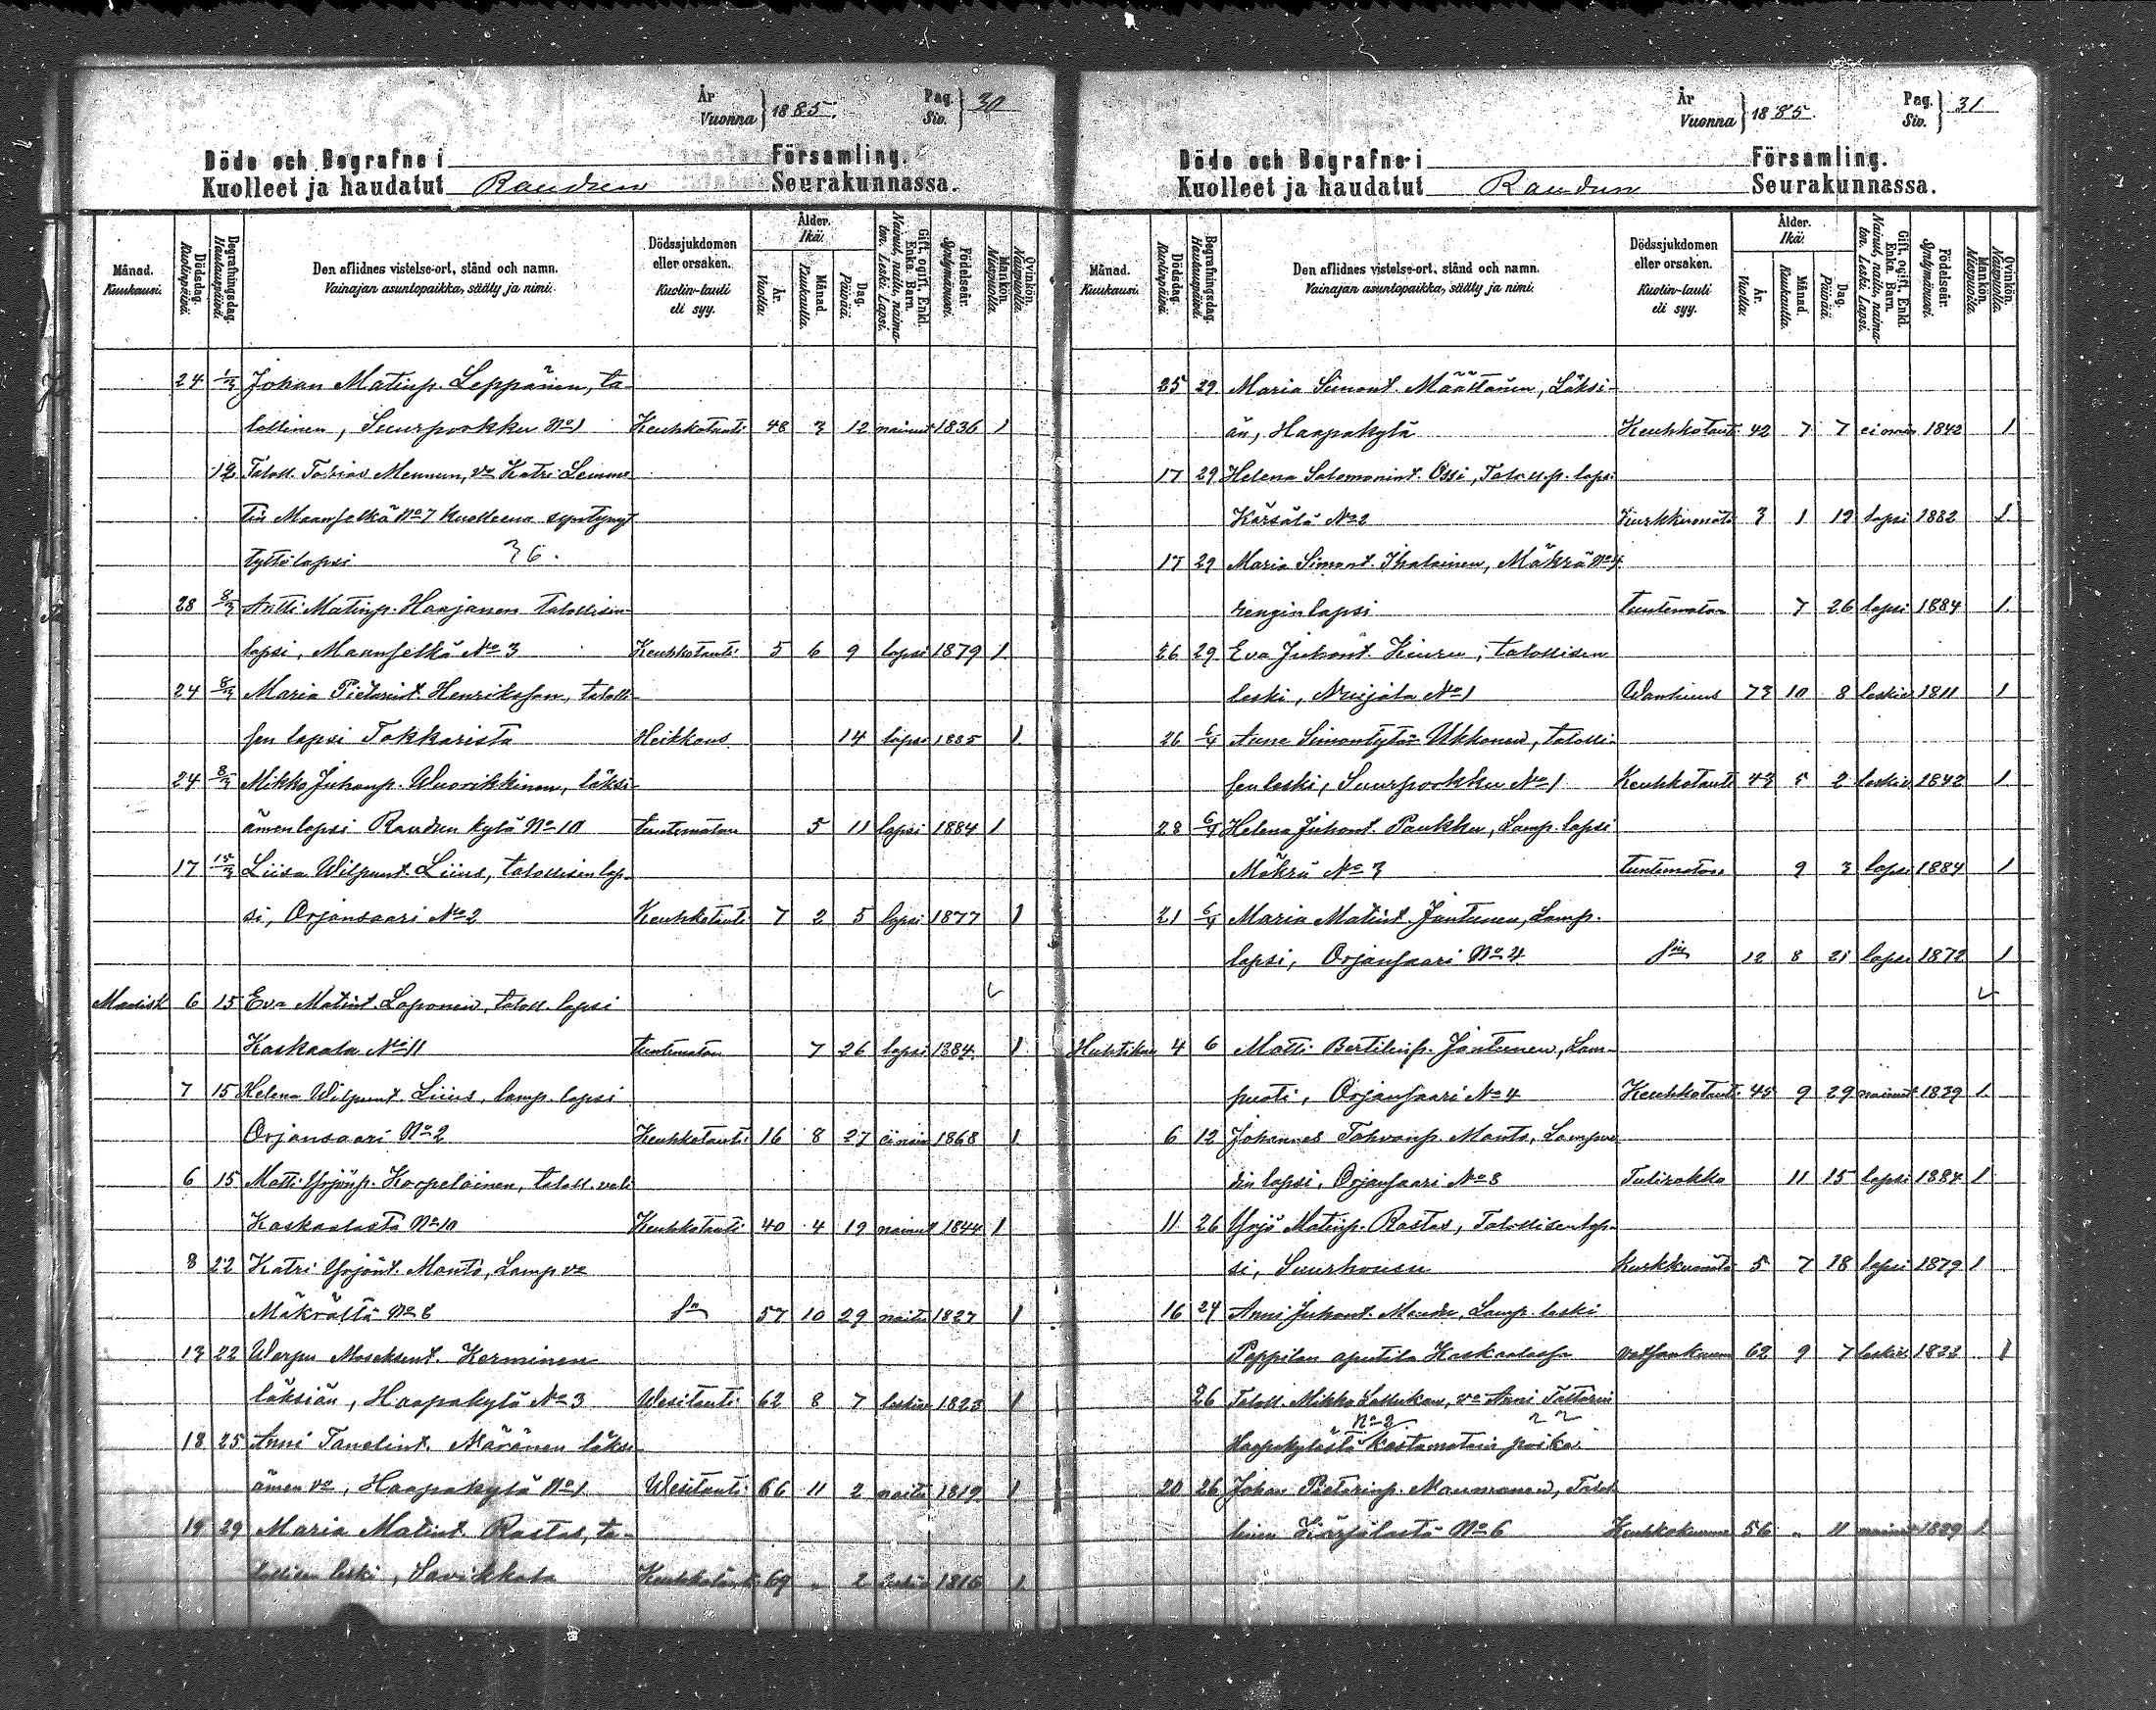 År
Vuonna } 1885.
Pag.
Siv. } 30
Döde och Begrafne i Församling.
Kuolleet ja haudatut Raudun Seurakunnassa.
Månad. Kuukausi. Dödsdag. Kuolinpäivä. Begrafningsdag. Hautauspäivä. Den aflidnes vistelse-ort, stånd och namn. Vainajan asuntopaikka, sääty ja nimi. Dödssjukdomen eller orsaken. Kuolin-tauti eli syy. Ålder. Ikä. År. Vuotta. Månad. Kuukautta. Dag. Päivää. Gift, ogift, Enkl. Enka. Barn. Nainut, naitu, naimaton. Leski. Lapsi. Födelseår. Syntymävuosi. Mankön. Miespuolia. Qvinkön. Naispuolia.
24 1/3 Johan Matinp. Leppänen, ta-
lollinen, Suurporkku No 1 Keuhkotauti 48 3 12 nainut 1836 1
12 Taloll. Tobias Mennun, vo Katri Lemme
tin Maanselkä No 7 kuolleena syntynyt
tyttölapsi 36.
28 8/3 Antti Matinp. Haajanen talollisen
lapsi, Maanselkä No 3 Keuhkotauti 5 6 9 lapsi 1879 1
24 8/3 Maria Pietarint. Henriksson, talolli-
sen lapsi Tokkarista Heikkous 14 lapsi 1885 1
24 8/3 Mikko Juhanp. Wuorikkinen, läksi-
ämen lapsi Raudun kylä No 10 tuntematon 5 11 lapsi 1884 1
17 15/3 Liisa Wilpunt. Liius, talollisen lap-
si, Orjansaari No 2 Keuhkotauti 7 2 5 lapsi 1877 1
Maalisk 6 15 Eva Matint. Loponen, taloll. lapsi
Kaskaala No 11 tuntematon 7 26 lapsi 1884 1
7 15 Helena Wilpunt. Liius, lamp. lapsi
Orjansaari No 2 Keuhkotauti 16 8 27 ei nain 1868 1
6 15 Matti Yrjönp. Korpelainen, taloll. veli
Kaskaalasta No 10 Keuhkotauti 40 4 19 nainut 1844 1
8 22 Katri Yrjönt. Manto, Lamp vo
Mäkrältä No 8 sn 57 10 29 naitu 1827 1
13 22 Werpu Moseksent. Kerminen
läksiän, Haapakylä No 3 Wesitauti 62 8 7 leskiv 1823 1
18 25 Anni Tanelint. Näränen läksi-
ämen vo, Haapakylä No 1 Wesitauti 66 11 2 naitu 1819 1
19 29 Maria Matint. Rastas, ta-
lollisen leski, Savikkala Keuhkotauti 69 " 2 leskiv 1816 1
År
Vuonna } 1885.
Pag.
Siv. } 31
Döde och Begrafne i Församling.
Kuolleet ja haudatut Raudun Seurakunnassa.
Månad. Kuukausi. Dödsdag. Kuolinpäivä. Begrafningsdag. Hautauspäivä. Den aflidnes vistelse-ort, stånd och namn. Vainajan asuntopaikka, sääty ja nimi. Dödssjukdomen eller orsaken. Kuolin-tauti eli syy. Ålder. Ikä. År. Vuotta. Månad. Kuukautta. Dag. Päivää. Gift, ogift, Enkl. Enka. Barn. Nainut, naitu, naimaton. Leski. Lapsi. Födelseår. Syntymävuosi. Mankön. Miespuolia. Qvinkön. Naispuolia.
25 29 Maria Simont. Määttänen, Läksi-
än, Haapakylä Keuhkotauti 42 7 7 ei nain 1842 1
17 29 Helena Salomonint. Ossi, Talollp. lapsi
Kärsälä No 2 Kurkkumätä 3 1 19 lapsi 1882 1
17 29 Maria Simont. Ihalainen, Mäkrä No 4
renginlapsi tuntematon 7 26 lapsi 1884 1
26 29 Eva Juhont. Kiuru, talollisen
leski, Nuijala No 1 Wanhuus 73 10 8 leskiv 1811 1
26 6/4 Anna Simontytär Ukkonen, talolli-
sen leski, Suurporkku No 1 Keuhkotauti 43 5 2 leskiv 1842 1
28 6/4 Helena Juhont. Paukku, Lamp. lapsi
Mäkrä No 3 tuntematon 9 3 lapsi 1884 1
21 6/4 Maria Matint. Jantunen, Lamp.
lapsi, Orjansaari No 4 sn 12 8 21 lapsi 1872 1
Huhtikuu 4 6 Matti Bertilinp. Jantunen, Lam-
puoti, Orjansaari No 4 Keuhkotauti 45 9 29 nainut 1839 1
6 12 Johannes Tahvanp. Manto, Lampuo
din lapsi, Orjansaari No 8 Tulirokko 11 15 lapsi 1884 1
11 26 Yrjö Matinp. Rastas, Talollisen lap-
si, Suurhousu Kurkkumätä 5 7 18 lapsi 1879 1
16 24 Anni Juhont. Lamp. leski
Pappilan aputila Kaskaalassa 62 9 7 leskiv 1822 1
26 Taloll. Mikko Lattukan, vo Anni Tattarin
No 2
Haapakylästä kastamatoin poika
20 26 Johan Pietarinp. Maunonen, Talol
linen Kärsälästä No 6 56 " 11 nainut 1829 1